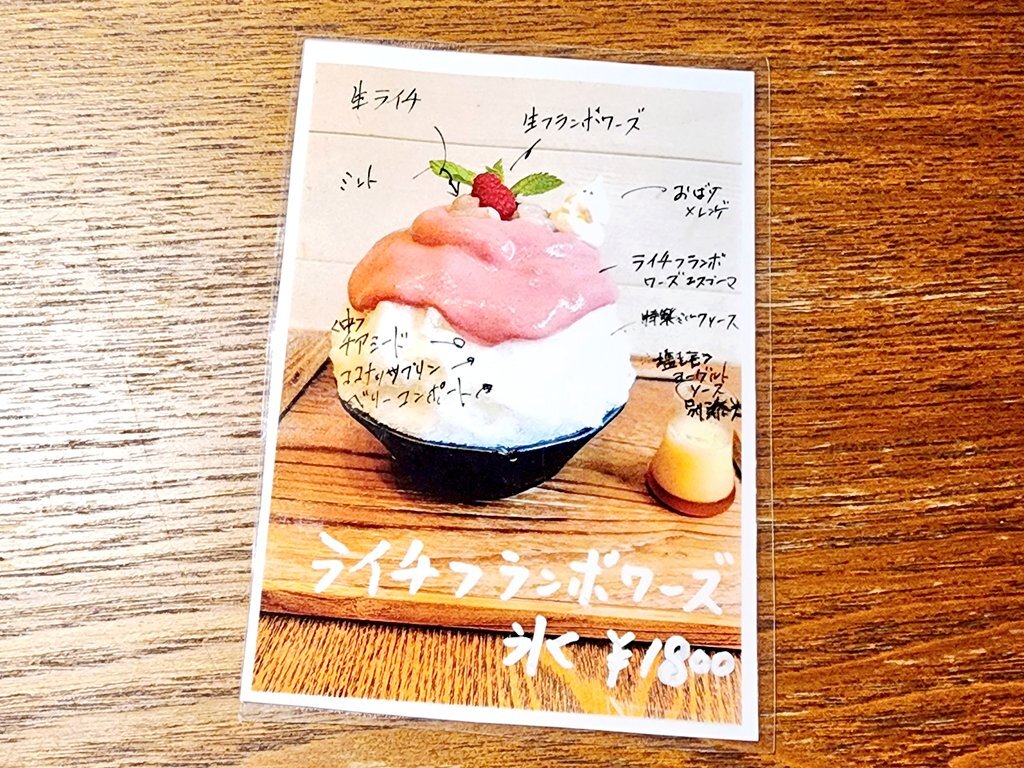 生ライチ
生フランボワーズ
ミント
おばけ
メレンゲ
ライチフランボ
ワーズエスプーマ
特製ミルクソース
<中>
チアシード
ココナッツプリン
ベリーコンポート
塩レモン
ヨーグルト
ソース
別添え
ライチフランボワーズ
氷く ¥1800